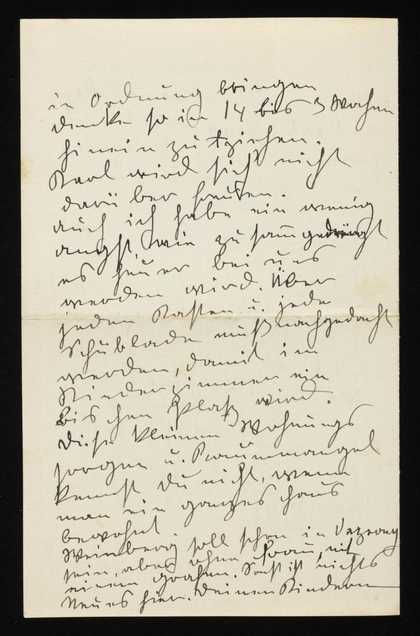 in Ordnung bringen
denke so in 14 bis 3 Wochen
hinein zu ziehen.
Karl wird sich nicht
darüber freuen.
auch ich habe ein wenig
angst, wie zusammgedrängt
es heuer bei uns
werden wird. Über
jeden Kasten u. jede
Schublade muß nachgedacht
werden, damit im
Kinderzimmer ein
bischen Platz wird.
Diese kleinen Wohnungs
sorgen u. Raummangel
kennst du nicht, wenn
man ein ganzes Haus
bewohnt.
Weinberg soll schon in
sein, aber ohne Frau, mit
einem grossen. Sonst ist nichts
Neues hier. Deinen Kindern